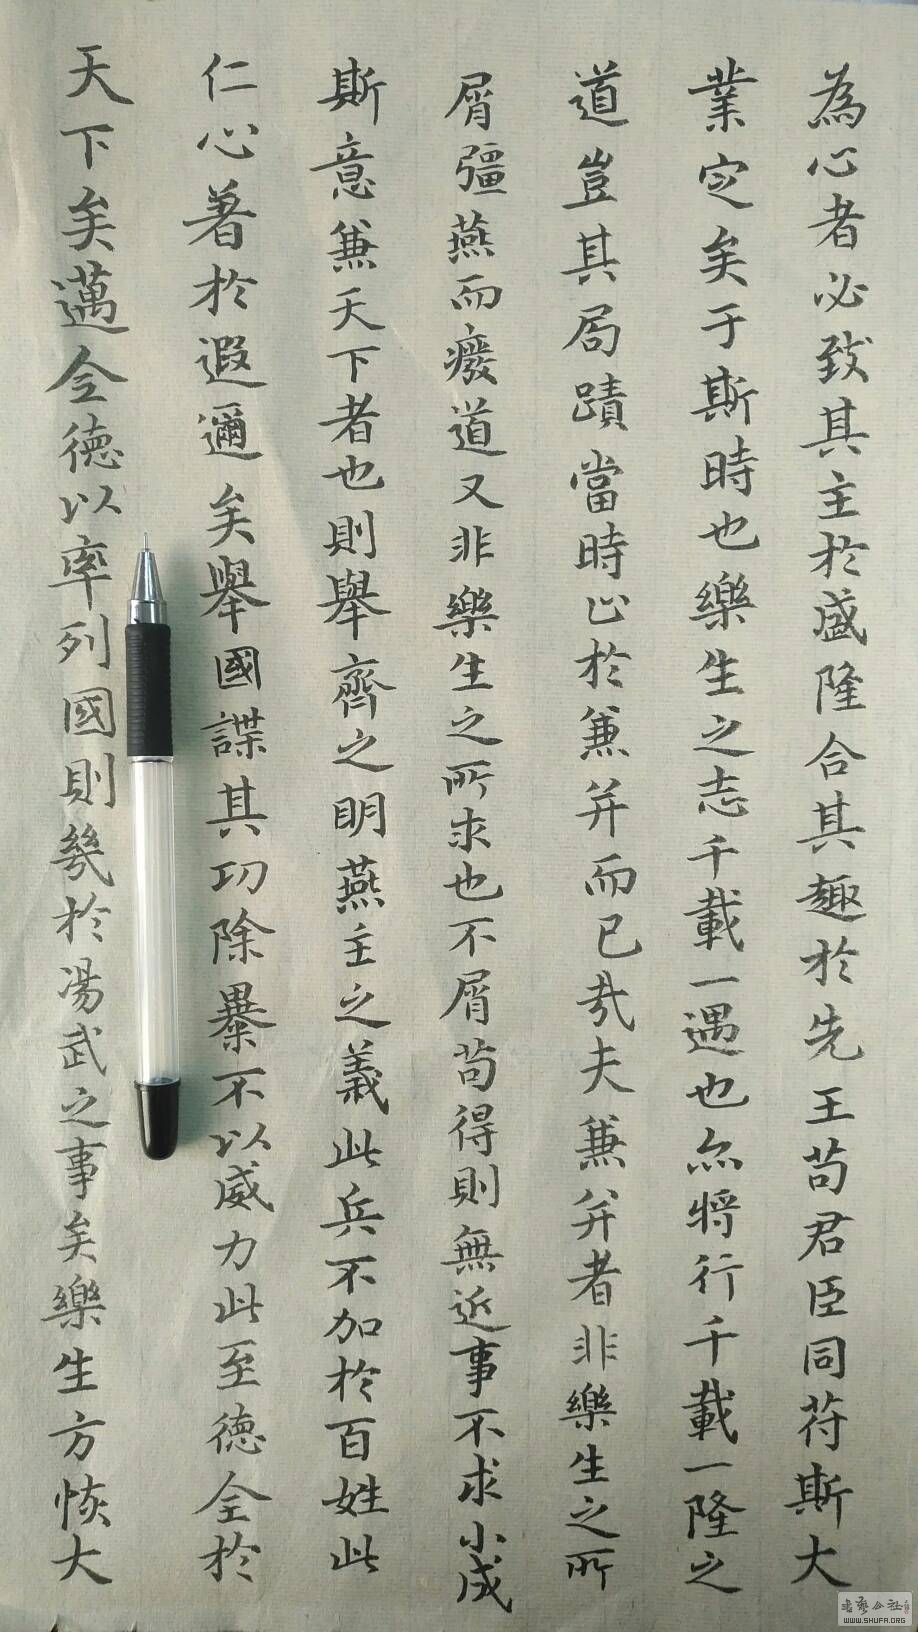 為心者必致其主於盛隆合其趣於先王苟君臣同苻斯大
業定矣于斯時也樂生之志千載一遇也亦將行千載一隆之
道豈其局蹟當時止於兼并而已哉夫兼并者非樂生之所
屑彊燕而癈道又非樂生之所求也不屑苟得則無近事不求小成
斯意兼天下者也則舉齊之明燕主之義此兵不加於百姓此
仁心著於遐邇矣舉國謀其功除暴不以威力此至德全於
天下矣邁令德以率列國則幾於湯武之事矣樂生方恢大
書藝公社
WWW.SHUFA.ORG